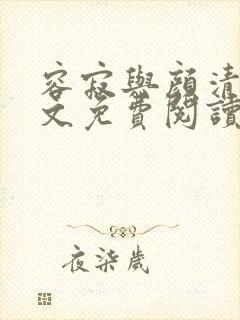 容寂與顏清
文免費閱讀
夜柒歲